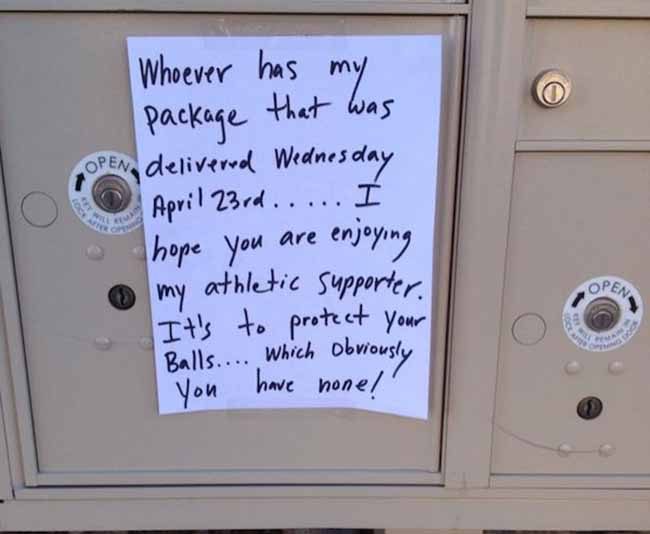 Whoever has my
package that was
delivered Wednesday
April 23rd..... I
hope you are enjoying
my athletic supporter.
It's to protect your
Balls.... which Obviously
You have none!
OPEN
KEY WILL REMAIN IN
LOCK AFTER OPENING
OPEN
KEY WILL REMAIN IN
LOCK AFTER OPENING DOOR